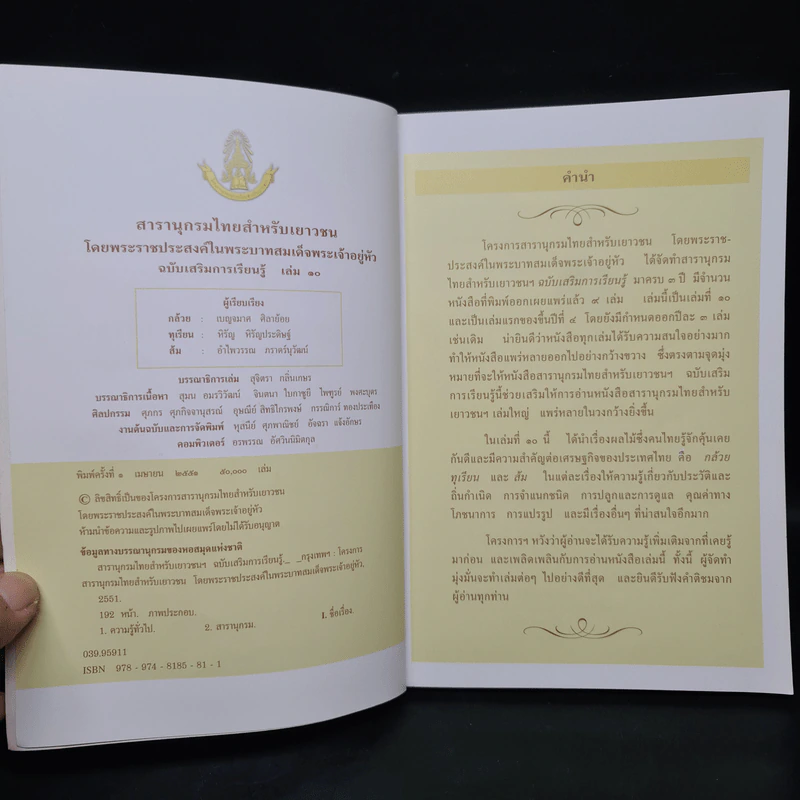 สารานุกรมไทยสำหรับเยาวชน
โดยพระราชประสงค์ในพระบาทสมเด็จพระเจ้าอยู่หัว
ฉบับเสริมการเรียนรู้ เล่ม ๑๐
ผู้เรียบเรียง
กล้วย : เบญจมาศ ศิลาย้อย
ทุเรียน : หิรัญ หิรัญประดิษฐ์
ส้ม : อำไพวรรณ ภราดร์นุวัฒน์
บรรณาธิการเล่ม สุจิตรา กลิ่นเกษร
บรรณาธิการเนื้อหา สุมน อมรวิวัฒน์ จินตนา ใบกาซูยี ไพฑูรย์ พงศะบุตร
ศิลปกรรม ศุภกร ศุภกิจจานุสรณ์ อุษณีย์ สิทธิไกรพงษ์ กรรณิการ์ ทองประเพียง
งานต้นฉบับและการจัดพิมพ์ หุสนีย์ ศุภพาณิชย์ อัจฉรา แจ้งอักษร
คอมพิวเตอร์ อรพรรณ อัศวินนิมิตกุล
พิมพ์ครั้งที่ ๑ เมษายน ๒๕๕๑ ๕๐,๐๐๐ เล่ม
© ลิขสิทธิ์เป็นของโครงการสารานุกรมไทยสำหรับเยาวชน
โดยพระราชประสงค์ในพระบาทสมเด็จพระเจ้าอยู่หัว
ห้ามนำข้อความและรูปภาพไปเผยแพร่โดยไม่ได้รับอนุญาต
ข้อมูลทางบรรณานุกรมของหอสมุดแห่งชาติ
สารานุกรมไทยสำหรับเยาวชนฯ ฉบับเสริมการเรียนรู้._ _กรุงเทพฯ : โครงการ
สารานุกรมไทยสำหรับเยาวชน โดยพระราชประสงค์ในพระบาทสมเด็จพระเจ้าอยู่หัว,
2551.
192 หน้า. ภาพประกอบ.
1. ความรู้ทั่วไป. 2. สารานุกรม. I. ชื่อเรื่อง.
039.95911
ISBN 978 - 974 - 8185 - 81 - 1
คำนำ
โครงการสารานุกรมไทยสำหรับเยาวชน โดยพระราช-
ประสงค์ในพระบาทสมเด็จพระเจ้าอยู่หัว ได้จัดทำสารานุกรม
ไทยสำหรับเยาวชนฯ ฉบับเสริมการเรียนรู้ มาครบ ๓ ปี มีจำนวน
หนังสือที่พิมพ์ออกเผยแพร่แล้ว ๙ เล่ม เล่มนี้เป็นเล่มที่ ๑๐
และเป็นเล่มแรกของขึ้นปีที่ ๔ โดยยังมีกำหนดออกปีละ ๓ เล่ม
เช่นเดิม น่ายินดีว่าหนังสือทุกเล่มได้รับความสนใจอย่างมาก
ทำให้หนังสือแพร่หลายออกไปอย่างกว้างขวาง ซึ่งตรงตามจุดมุ่ง
หมายที่จะให้หนังสือสารานุกรมไทยสำหรับเยาวชนฯ ฉบับเสริม
การเรียนรู้นี้ช่วยเสริมให้การอ่านหนังสือสารานุกรมไทยสำหรับ
เยาวชนฯ เล่มใหญ่ แพร่หลายในวงกว้างยิ่งขึ้น
ในเล่มที่ ๑๐ นี้ ได้นำเรื่องผลไม้ซึ่งคนไทยรู้จักคุ้นเคย
กันดีและมีความสำคัญต่อเศรษฐกิจของประเทศไทย คือ กล้วย
ทุเรียน และ ส้ม ในแต่ละเรื่องให้ความรู้เกี่ยวกับประวัติและ
ถิ่นกำเนิด การจำแนกชนิด การปลูกและการดูแล คุณค่าทาง
โภชนาการ การแปรรูป และมีเรื่องอื่นๆ ที่น่าสนใจอีกมาก
โครงการฯ หวังว่าผู้อ่านจะได้รับความรู้เพิ่มเติมจากที่เคยรู้
มาก่อน และเพลิดเพลินกับการอ่านหนังสือเล่มนี้ ทั้งนี้ ผู้จัดทำ
มุ่งมั่นจะทำเล่มต่อๆ ไปอย่างดีที่สุด และยินดีรับฟังคำติชมจาก
ผู้อ่านทุกท่าน